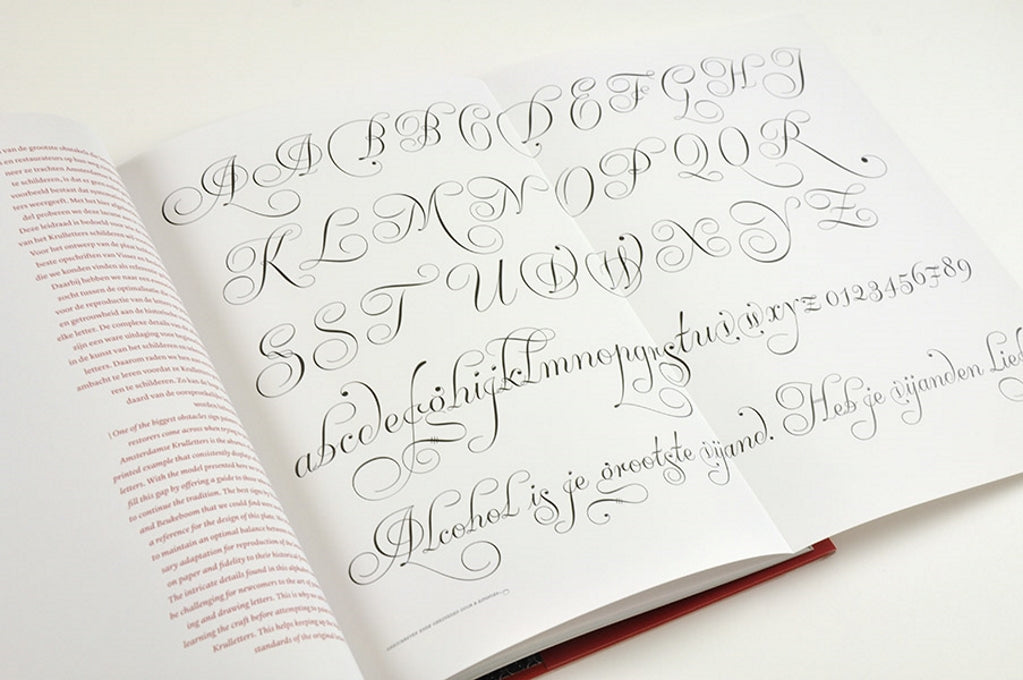 van de grootste obstakels
en restaurateurs op hun weg
neer ze trachten Amsterdamse
te schilderen, is dat er geen
voorbeeld bestaat dat
ters weergeeft. Met het hier
del proberen we deze lacune
Deze leidraad is bedoeld voor
van het Krulletters schilderen
Voor het ontwerp van de plaat
beste opschriften van Visser
die we konden vinden als referentie
Daarbij hebben we naar een
zocht tussen de optimalisatie
voor de reproductie van de letters
en getrouwheid aan de historische
elke letter. De complexe details van
zijn een ware uitdaging voor
in de kunst van het schilderen
letters. Daarom raden we
ambacht te leren voordat ze
ren te schilderen. Zo kan de
daard van de oorspronkelijke
worden
| One of the biggest obstacles sign
restorers come across when trying
Amsterdamse Krulletters is the absence
printed example that consistently displays
letters. With the model presented here we
fill this gap by offering a guide to those
to continue the tradition. The best signs
and Beukeboom that we could find were
a reference for the design of this plate.
to maintain an optimal balance between
sary adaptation for reproduction of the
on paper and fidelity to their historical
The intricate details found in this alphabet
be challenging for newcomers to the art of
ing and drawing letters. This is why we
learning the craft before attempting to
Krulletters. This helps keeping up the
standards of the original
A A B B C D E F G H I
K L M N O P Q O R
S S T U D W X Y Z
abcdefghijklmnopqrstuvwxyz0123456789
Alcohol is je grootste vijand. Heb je vijanden Lief